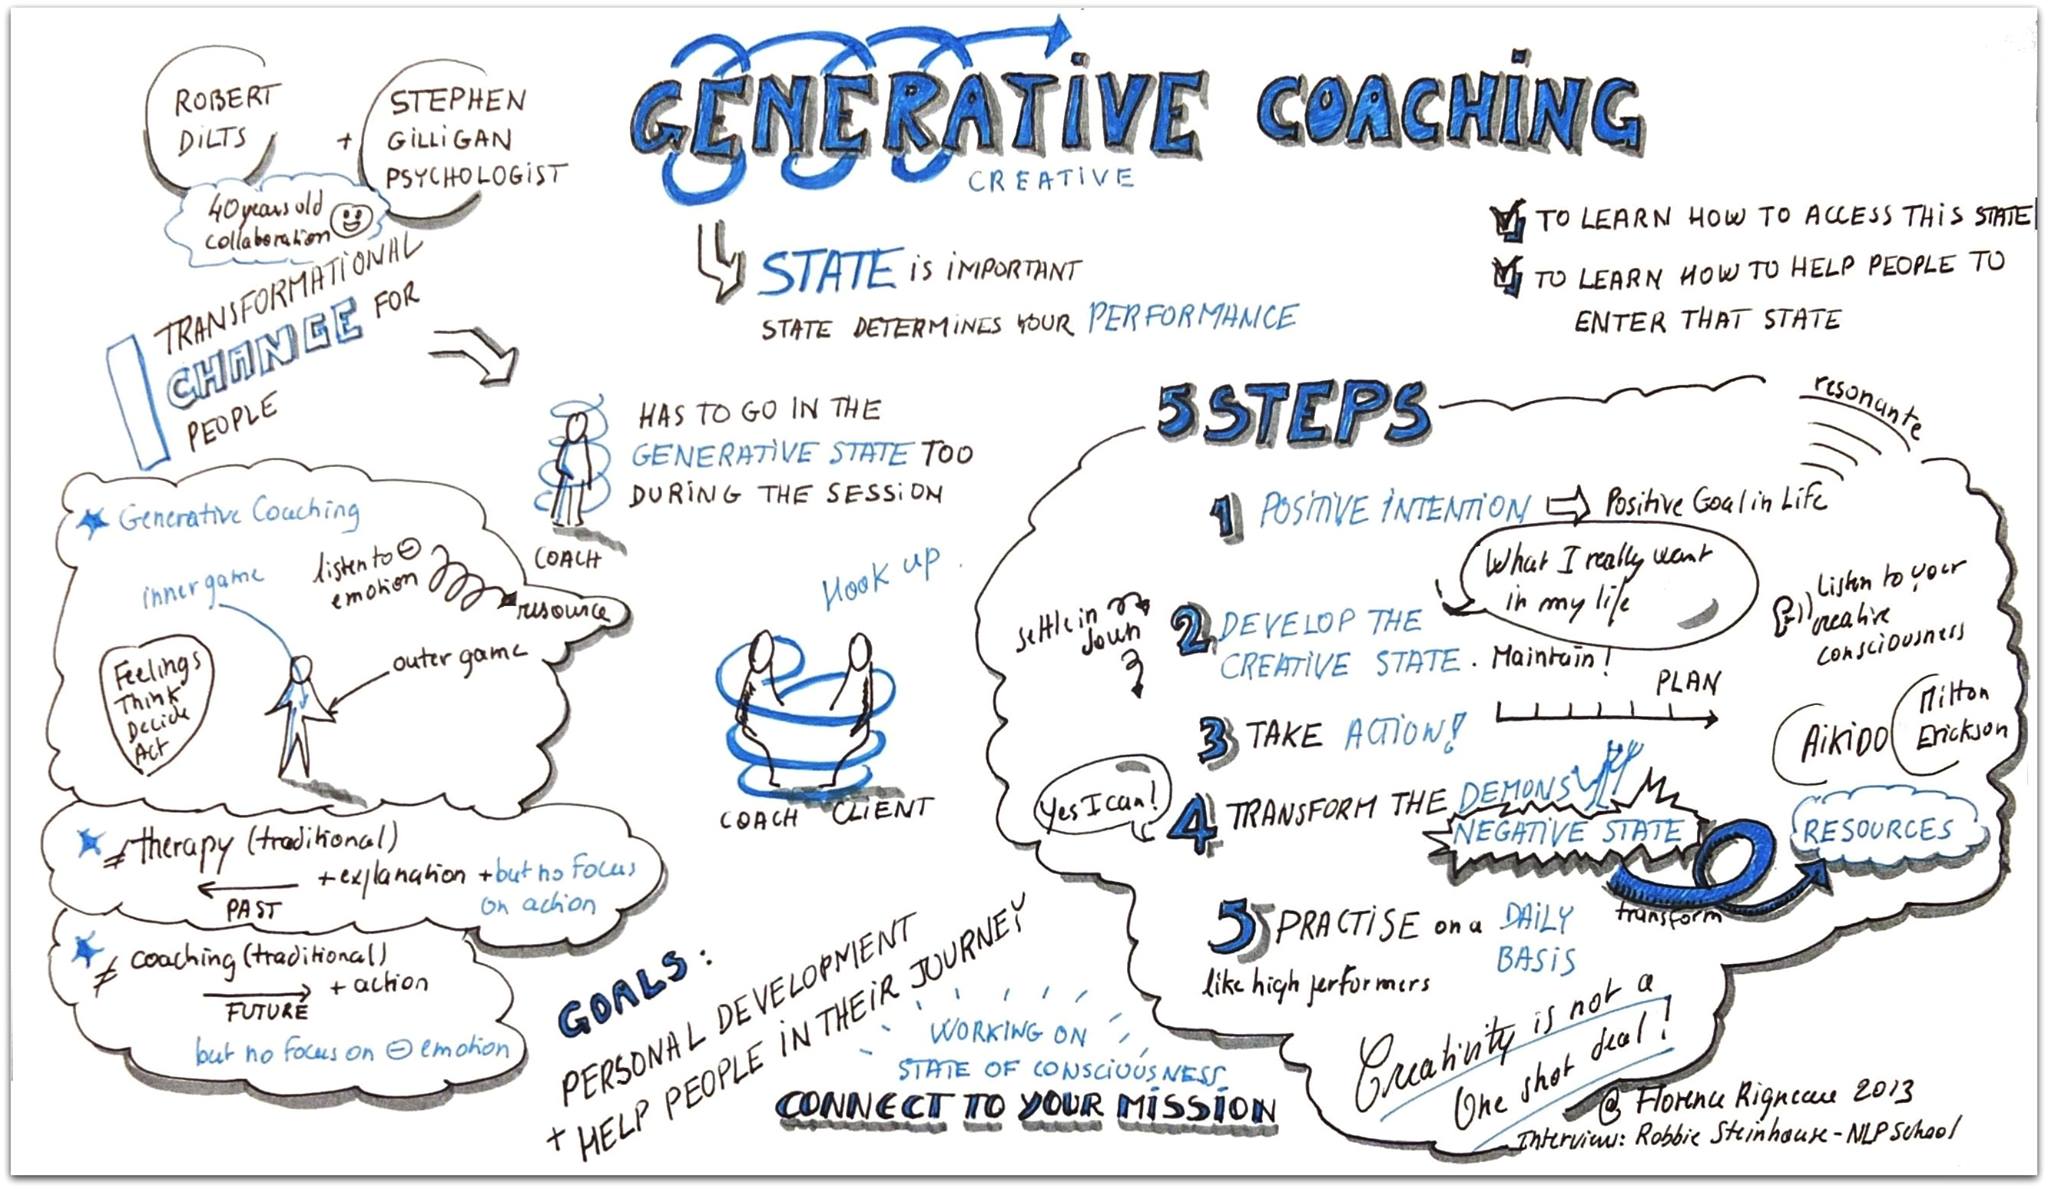 ROBERT
DILTS
+
STEPHEN
GILLIGAN
PSYCHOLOGIST
40 years old
collaboration
GENERATIVE COACHING
CREATIVE
STATE IS IMPORTANT
STATE DETERMINES YOUR PERFORMANCE
TO LEARN HOW TO ACCESS THIS STATE
TO LEARN HOW TO HELP PEOPLE TO
ENTER THAT STATE
TRANSFORMATIONAL
CHANGE FOR
PEOPLE
HAS TO GO IN THE
GENERATIVE STATE TOO
DURING THE SESSION
COACH
Generative Coaching
inner game
listen to ⊖
emotion
resource
outer game
Feelings
Think
Decide
Act
≠ therapy (traditional)
PAST
+ explanation + but no focus
on action
≠ coaching (traditional)
FUTURE
+ action
but no focus on ⊖ emotion
Hook up
COACH CLIENT
GOALS:
PERSONAL DEVELOPMENT
+ HELP PEOPLE IN THEIR JOURNEY
WORKING ON
STATE OF CONSCIOUSNESS
CONNECT TO YOUR MISSION
5 STEPS
resonante
1 POSITIVE INTENTION ⇨ Positive Goal in Life
What I really want
in my life
settle in
down
2 DEVELOP THE
CREATIVE STATE. Maintain!
Listen to your
creative
consciousness
3 TAKE ACTION!
PLAN
AIKIDO
Milton
Erickson
Yes I can!
4 TRANSFORM THE DEMONS
NEGATIVE STATE
transform
RESOURCES
5 PRACTISE on a DAILY
BASIS
like high performers
Creativity is not a
One shot deal!
@ Florence Rigneau 2013
Interview: Robbie Steinhouse - NLP School